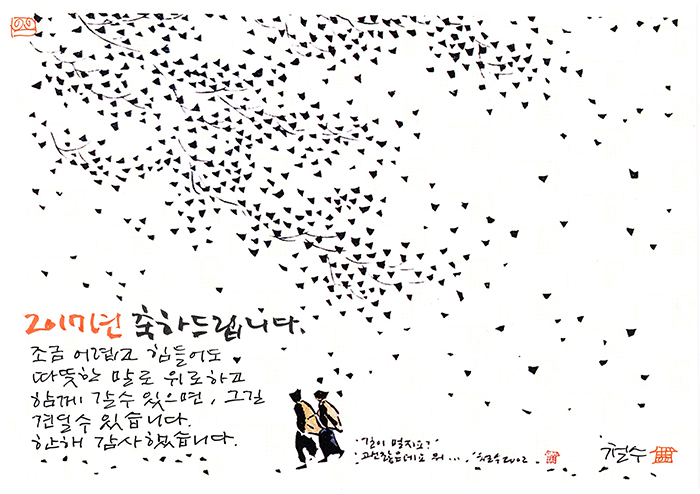 2017년 축하드립니다.
조금 어렵고 힘들어도
따뜻한 말로 위로하고
함께 갈수 있으면, 그길
견딜수 있습니다.
한해 감사했습니다.
"길이 멀지요?"
괜찮은데요 뭐 ... 철수 2002
철수